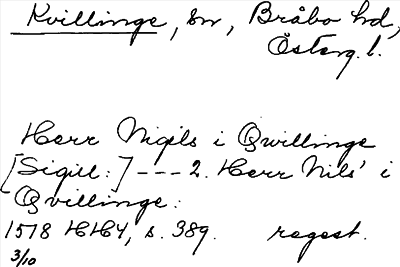 Kvillinge, sn, Bråbo hd,
Österg. l.
Herr Nigils i Qwillinge
[Sigill:] --- 2. Herr Nils' i
Qvillinge.
1578 HH4, s. 389. regest.
3/10